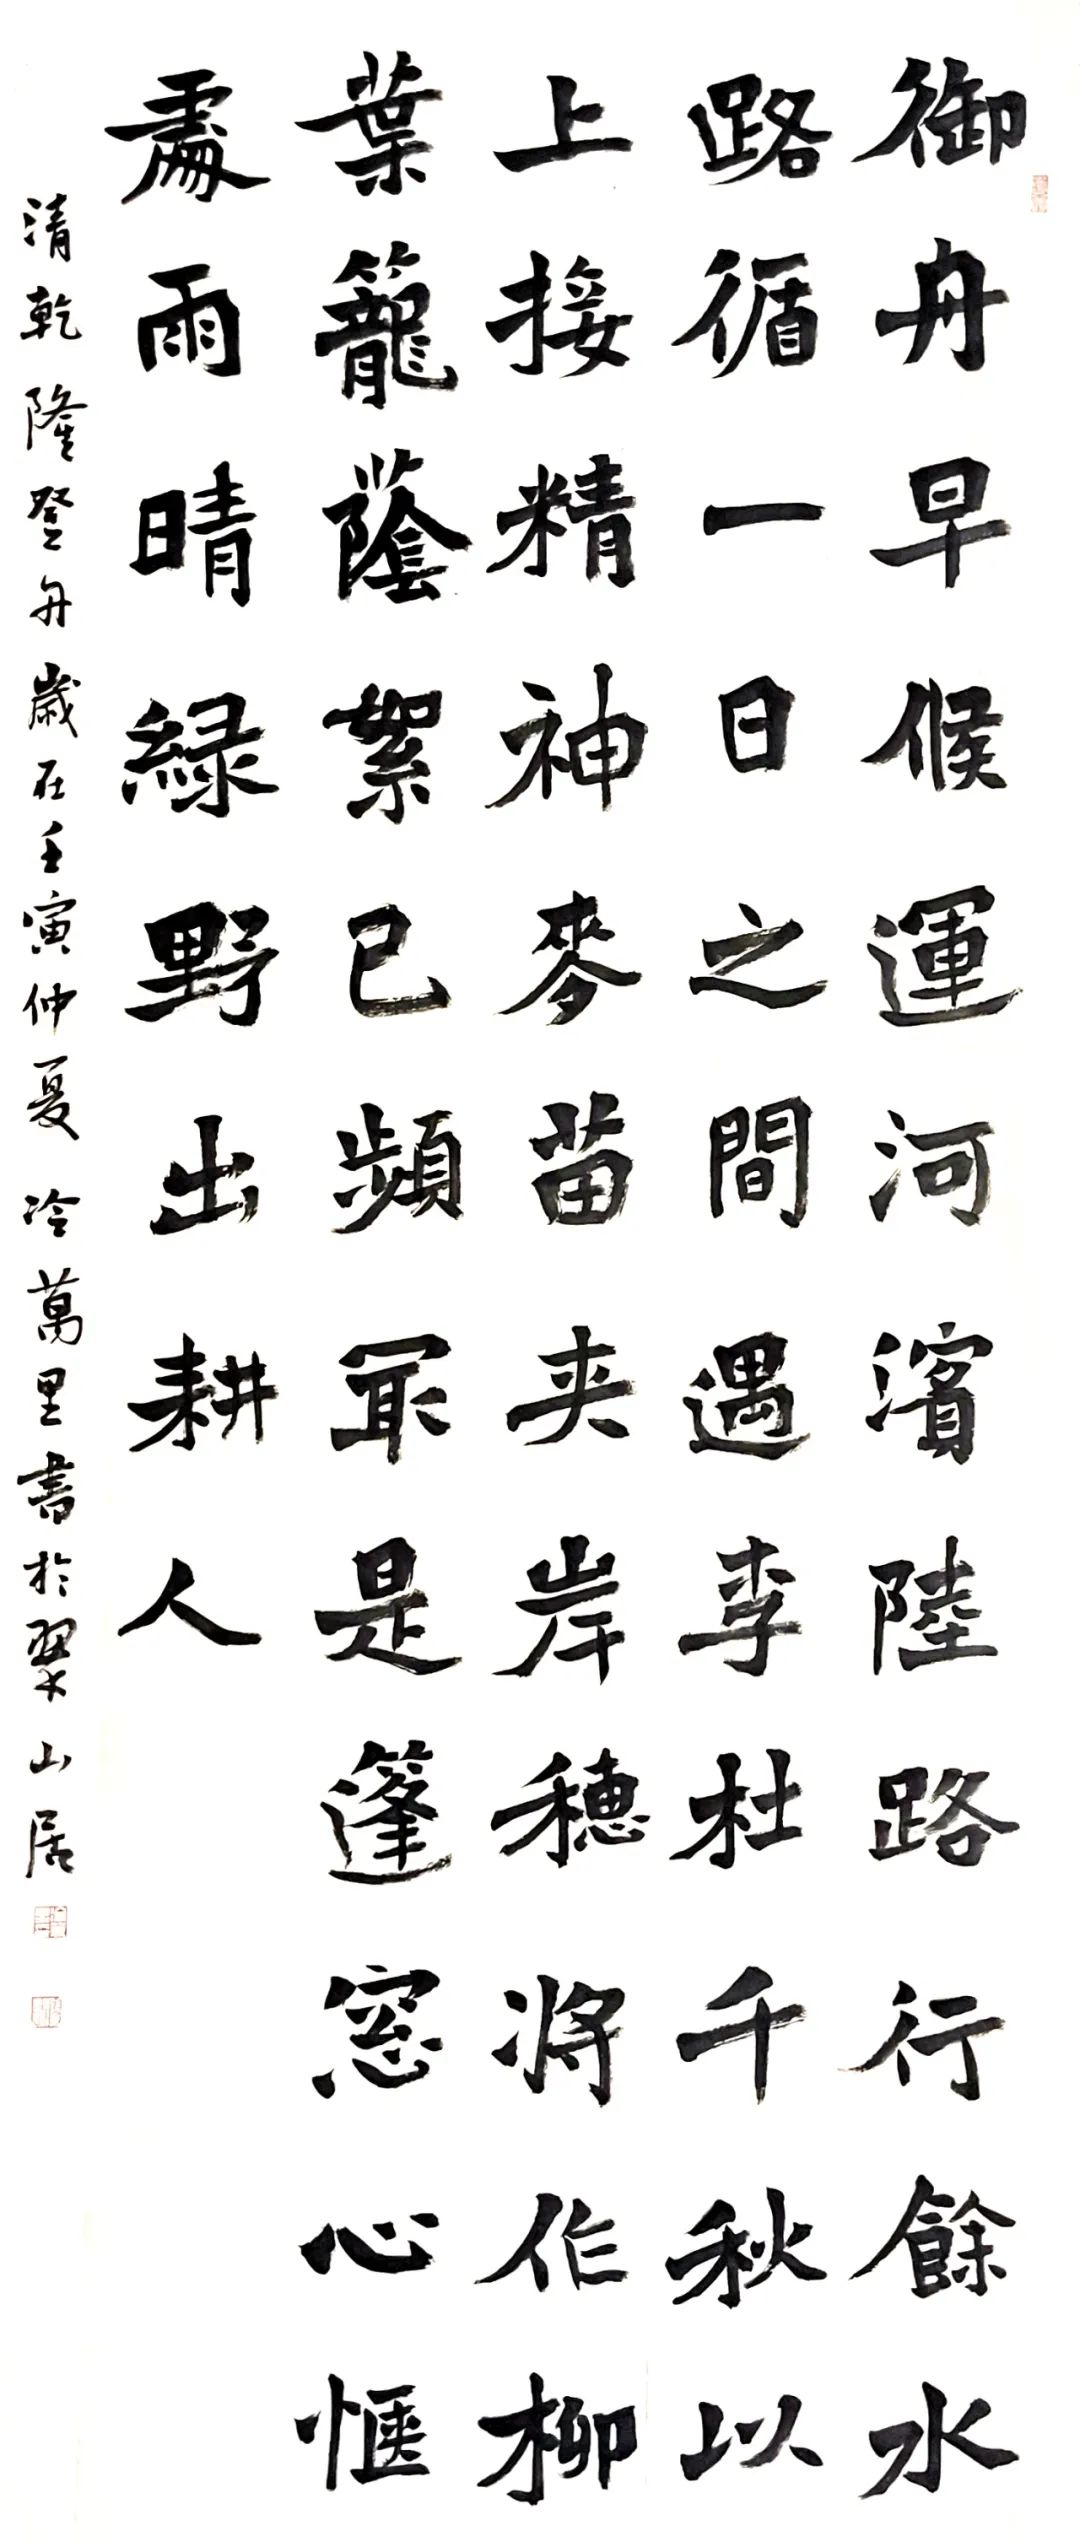 御舟早候運河濱陸路行餘水
路循一日之間遇李杜千秋以
上接精神麥苗夾岸穗將作柳
葉籠蔭絮已頻最是篷窓心愜
處雨晴綠野出耕人
清乾隆登舟歲在壬寅仲夏冷萬里書於翠山居